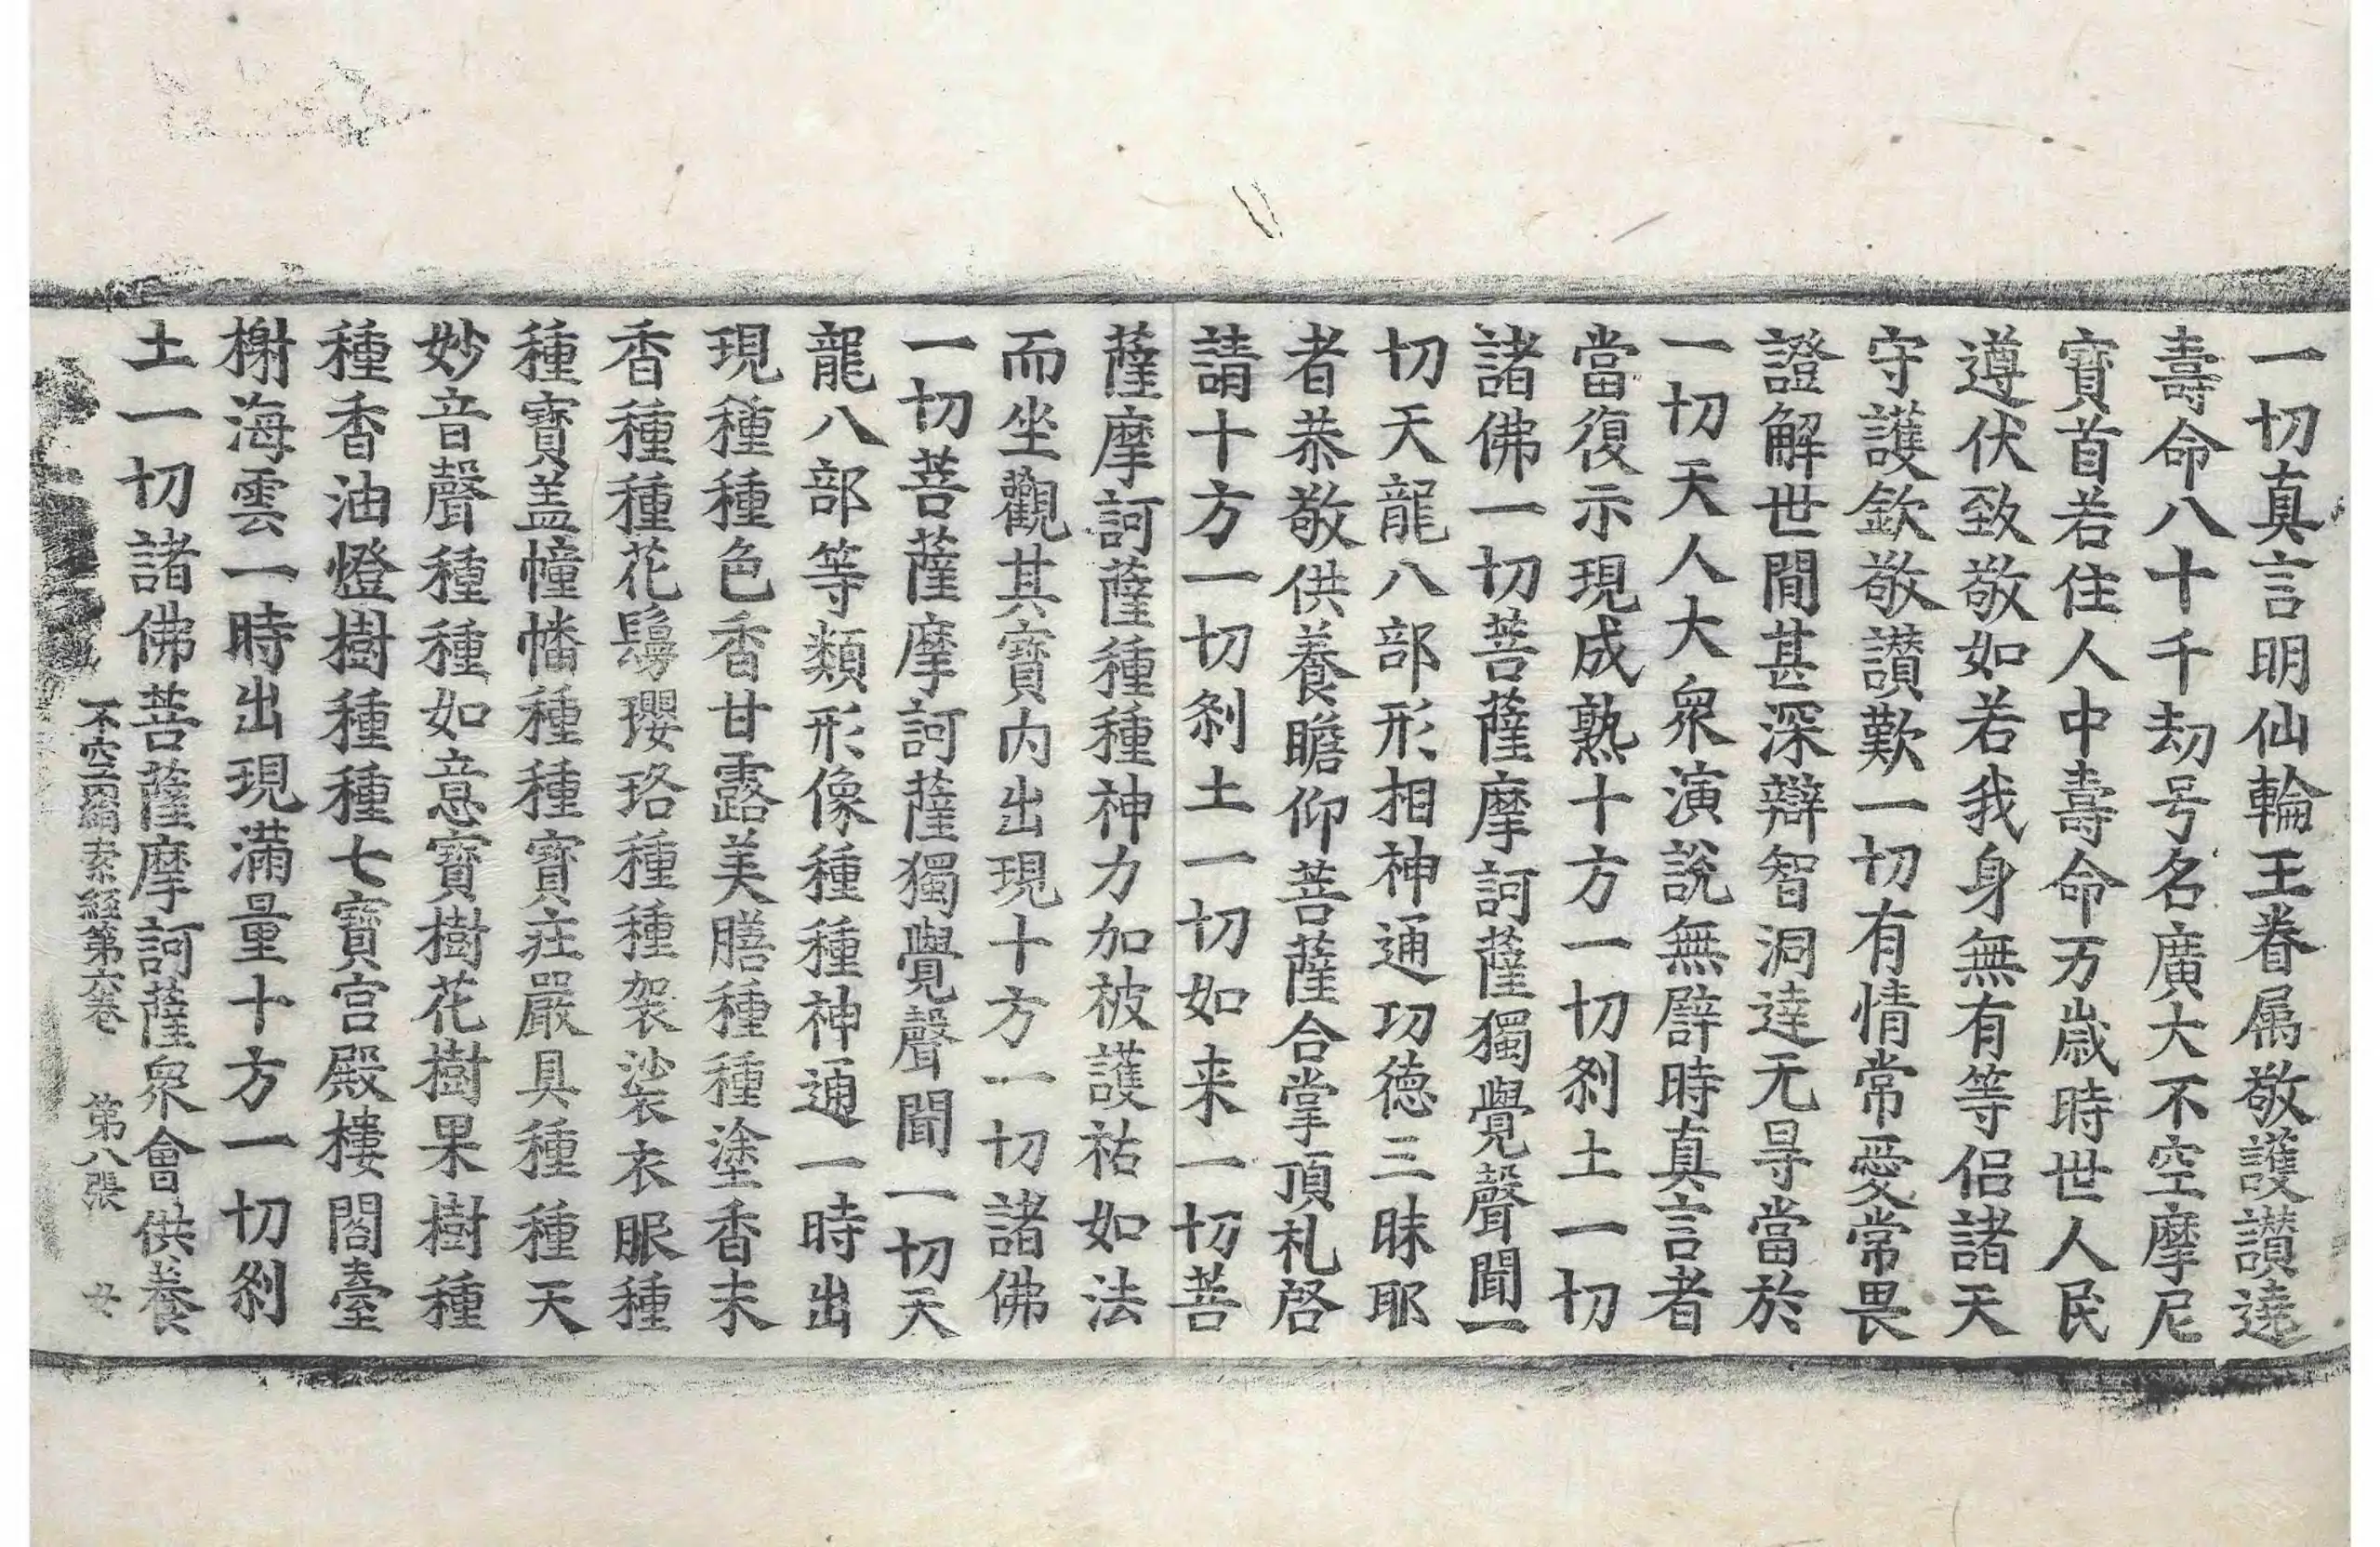 一切真言明仙輪王眷属敬護讃遶
壽命八十千劫号名廣大不空摩尼
寶首若住人中壽命万歲時世人民
遵伏致敬如若我身無有等侣諸天
守護欽敬讃歎一切有情常愛常畏
證解世間甚深辯智洞達无㝵當於
一切天人大衆演說無辟時真言者
當復示現成熟十方一切刹土一切
諸佛一切菩薩摩訶薩獨覺聲聞一
切天龍八部形相神通功德三昧耶
者恭敬供養瞻仰菩薩合掌頂礼啓
請十方一切刹土一切如来一切菩
薩摩訶薩種種神力加被護祐如法
而坐觀其寶内出現十方一切諸佛
一切菩薩摩訶薩獨覺聲聞一切天
龍八部等類形像種種神通一時出
現種種色香甘露美膳種種塗香末
香種種花鬘瓔珞種種袈裟衣服種
種寶盖幢幡種種寶莊嚴具種種天
妙音聲種種如意寶樹花樹果樹種
種香油燈樹種種七寶宮殿樓閣臺
榭海雲一時出現滿量十方一切刹
土一切諸佛菩薩摩訶薩衆會供養
不空羂索經第六卷 第八張 女